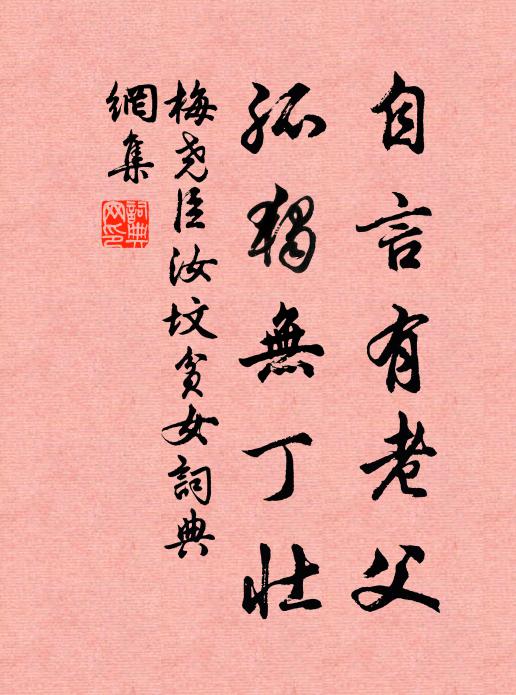 自言有老父
孤獨無丁壯
梅堯臣汝墳貧女詞典
網集
詞典
网印